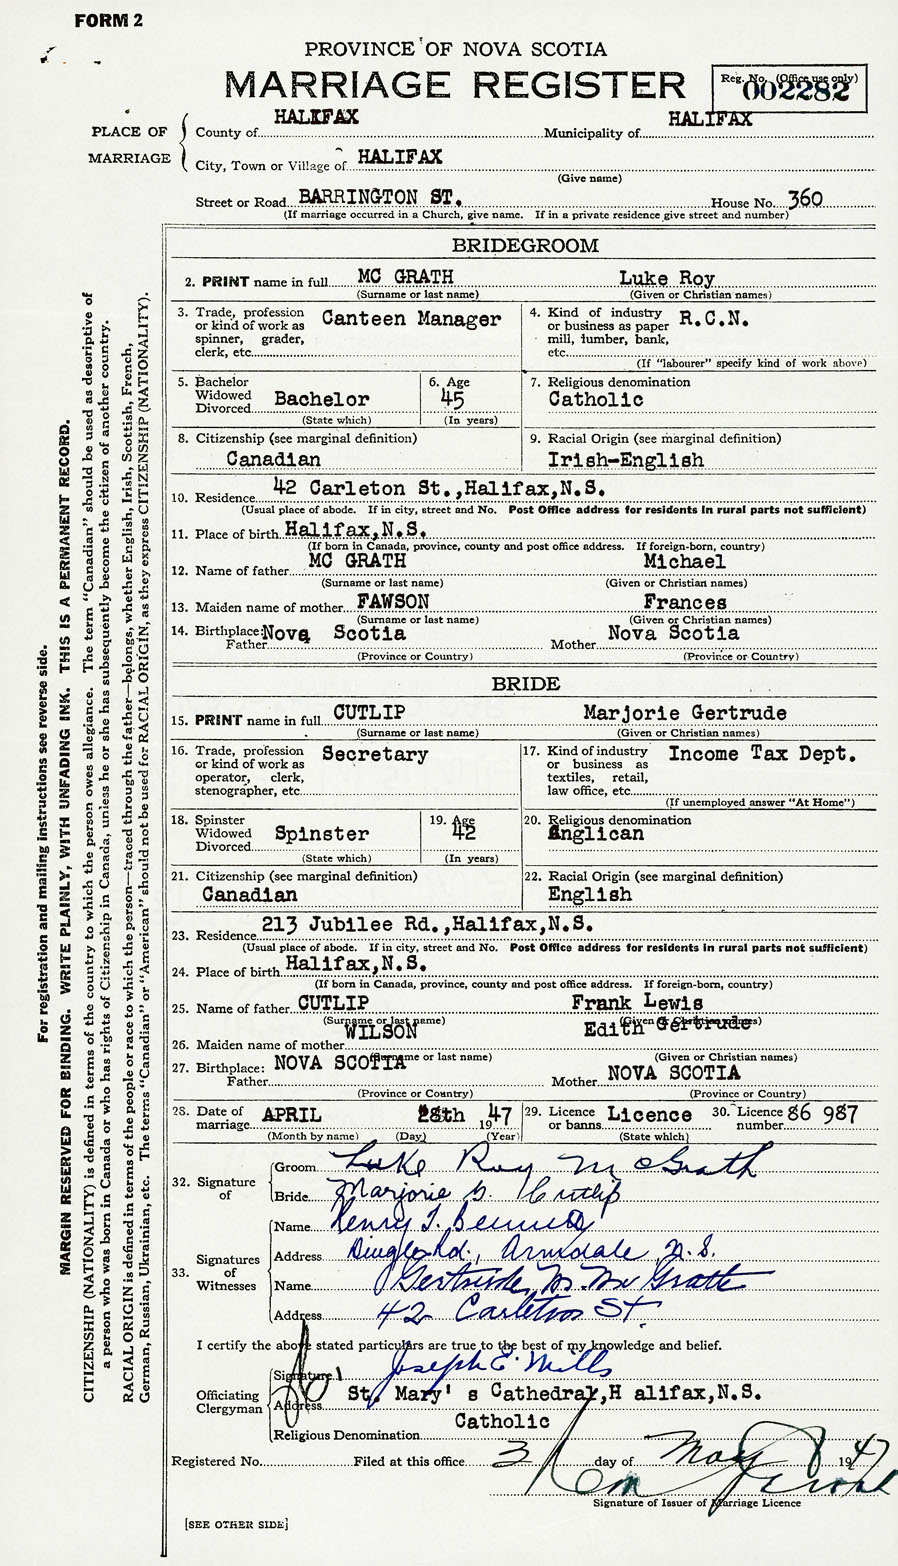 FORM 2
PROVINCE OF NOVA SCOTIA
MARRIAGE REGISTER
Reg. No. (Office use only)
002282
PLACE OF MARRIAGE
County of HALIFAX Municipality of HALIFAX
City, Town or Village of HALIFAX
(Give name)
Street or Road BARRINGTON ST. House No. 360
(If marriage occurred in a Church, give name. If in a private residence give street and number)
BRIDEGROOM
2. PRINT name in full MC GRATH Luke Roy
(Surname or last name) (Given or Christian names)
3. Trade, profession or kind of work as spinner, grader, clerk, etc. Canteen Manager
4. Kind of industry or business as paper mill, lumber, bank, etc. R.C.N.
(If "labourer" specify kind of work above)
5. Bachelor Widowed Divorced Bachelor
(State which)
6. Age 45
(In years)
7. Religious denomination
Catholic
8. Citizenship (see marginal definition)
Canadian
9. Racial Origin (see marginal definition)
Irish-English
10. Residence 42 Carleton St.,Halifax,N.S.
(Usual place of abode. If in city, street and No. Post Office address for residents in rural parts not sufficient)
11. Place of birth Halifax,N.S.
(If born in Canada, province, county and post office address. If foreign-born, country)
12. Name of father MC GRATH Michael
(Surname or last name) (Given or Christian names)
13. Maiden name of mother FAWSON Frances
(Surname or last name) (Given or Christian names)
14. Birthplace: Father Nova Scotia Mother Nova Scotia
(Province or Country) (Province or Country)
BRIDE
15. PRINT name in full CUTLIP Marjorie Gertrude
(Surname or last name) (Given or Christian names)
16. Trade, profession or kind of work as operator, clerk, stenographer, etc. Secretary
17. Kind of industry or business as textiles, retail, law office, etc. Income Tax Dept.
(If unemployed answer "At Home")
18. Spinster Widowed Divorced Spinster
(State which)
19. Age 42
(In years)
20. Religious denomination
Anglican
21. Citizenship (see marginal definition)
Canadian
22. Racial Origin (see marginal definition)
English
23. Residence 213 Jubilee Rd.,Halifax,N.S.
(Usual place of abode. If in city, street and No. Post Office address for residents in rural parts not sufficient)
24. Place of birth Halifax,N.S.
(If born in Canada, province, county and post office address. If foreign-born, country)
25. Name of father CUTLIP Frank Lewis
(Surname or last name) (Given or Christian names)
26. Maiden name of mother WILSON Edith Gertrude
(Surname or last name) (Given or Christian names)
27. Birthplace: Father NOVA SCOTIA Mother NOVA SCOTIA
(Province or Country) (Province or Country)
28. Date of marriage APRIL 28th 1947
(Month by name) (Day) (Year)
29. Licence or banns Licence
(State which)
30. Licence number 86 987
32. Signature of
Groom Luke Roy McGrath
Bride Marjorie G. Cutlip
33. Signatures of Witnesses
Name Henry T. Bennett
Address Dingle Rd., Armdale N.S.
Name Gertrude M. McGrath
Address 42 Carleton St.
I certify the above stated particulars are true to the best of my knowledge and belief.
Officiating Clergyman
Signature Joseph E. Mills
Address St. Mary's Cathedral,H alifax,N.S.
Catholic
Religious Denomination
Registered No. Filed at this office 3 day of May 1947
Signature of Issuer of Marriage Licence
[SEE OTHER SIDE]
For registration and mailing instructions see reverse side.
MARGIN RESERVED FOR BINDING. WRITE PLAINLY, WITH UNFADING INK. THIS IS A PERMANENT RECORD.
CITIZENSHIP (NATIONALITY) is defined in terms of the country to which the person owes allegiance. The term "Canadian" should be used as descriptive of
a person who was born in Canada or who has rights of Citizenship in Canada, unless he or she has subsequently become the citizen of another country.
RACIAL ORIGIN is defined in terms of the people or race to which the person—traced through the father—belongs, whether English, Irish, Scottish, French,
German, Russian, Ukrainian, etc. The terms "Canadian" or "American" should not be used for RACIAL ORIGIN, as they express CITIZENSHIP (NATIONALITY).